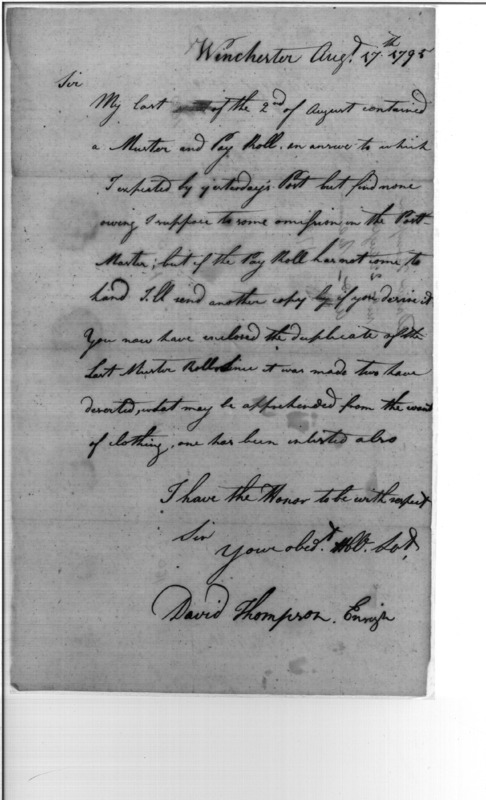 Winchester Augt. 17th 1795
Sir
My last of the 2nd of August contained
a Muster and Pay Roll. an answer to which
I expected by yesterday's Post but find none
owing I suppose to some omission in the Post-
Master; but if the Pay Roll has not come to
hand I.ll send another copy if you desire it
You now have enclosed the duplicate of the
Last Muster Roll since it was made two have
deserted, what may be apprehended from the want
of clothing, one has been enlisted also
I have the Honor to be with respect
Sir
Your obedt. Hble. Sevt.
David Thompson. Ensign